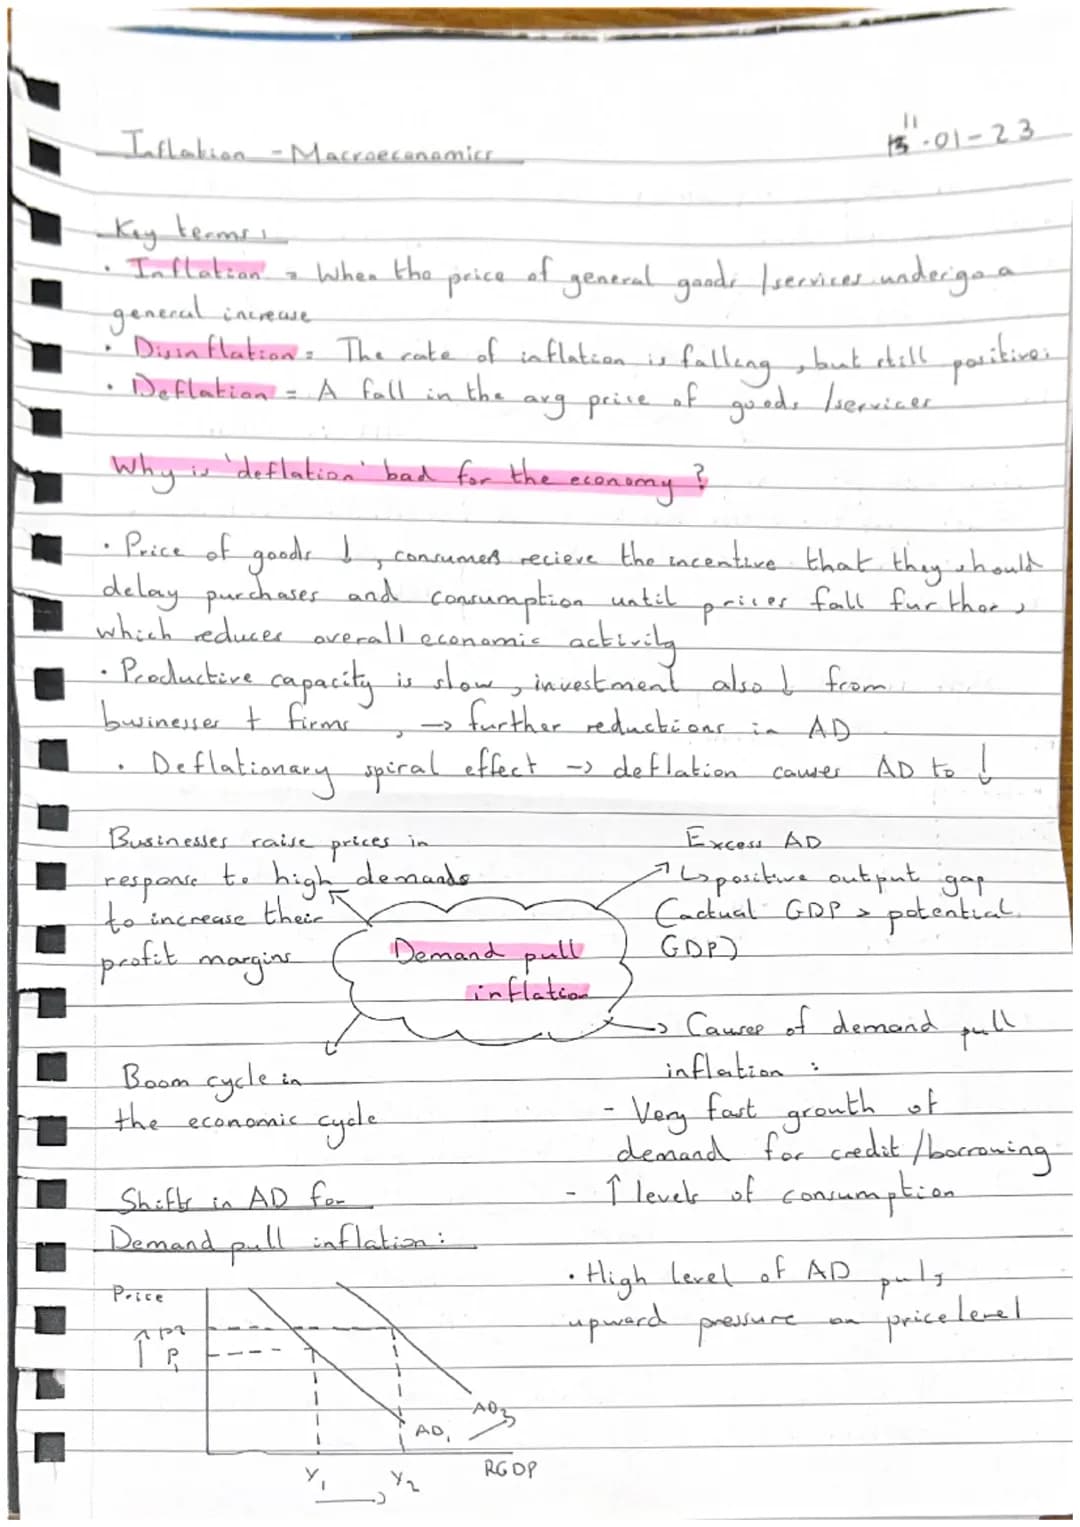 Inflation - Macroeconomics
11
13 -01-23
Key terms:
· Inflation = When the price of general goods /services undergo a
general increase
· Disinflation = The rate of inflation is falling, but still positive.
· Deflation = A fall in the avg price of goods /services
Why is 'deflation' bad for the economy?
· Price of goods ↓, consumers recieve the incentive that they should
delay purchases and consumption until prices fall further,
which reduces overall economic activity
· Productive capacity is slow, investment also ↓ from
businesses + firms, → further reductions in AD
· Deflationary spiral effect → deflation causes AD to ↓
Businesses raise prices in
response to high demands
to increase their
profit margins
Excess AD
↳ positive output gap
(actual GDP > potential
GDP)
Demand pull
inflation
Boom cycle in
the economic cycle
→ Causes of demand pull
inflation :
- Very fast growth of
demand for credit /borrowing
- ↑ levels of consumption
· High level of AD puts
upward pressure on price level
Shifts in AD for
Demand pull inflation:
Price
↑ P2
P1
AD2
AD1
Y1 Y2
→
RGDP